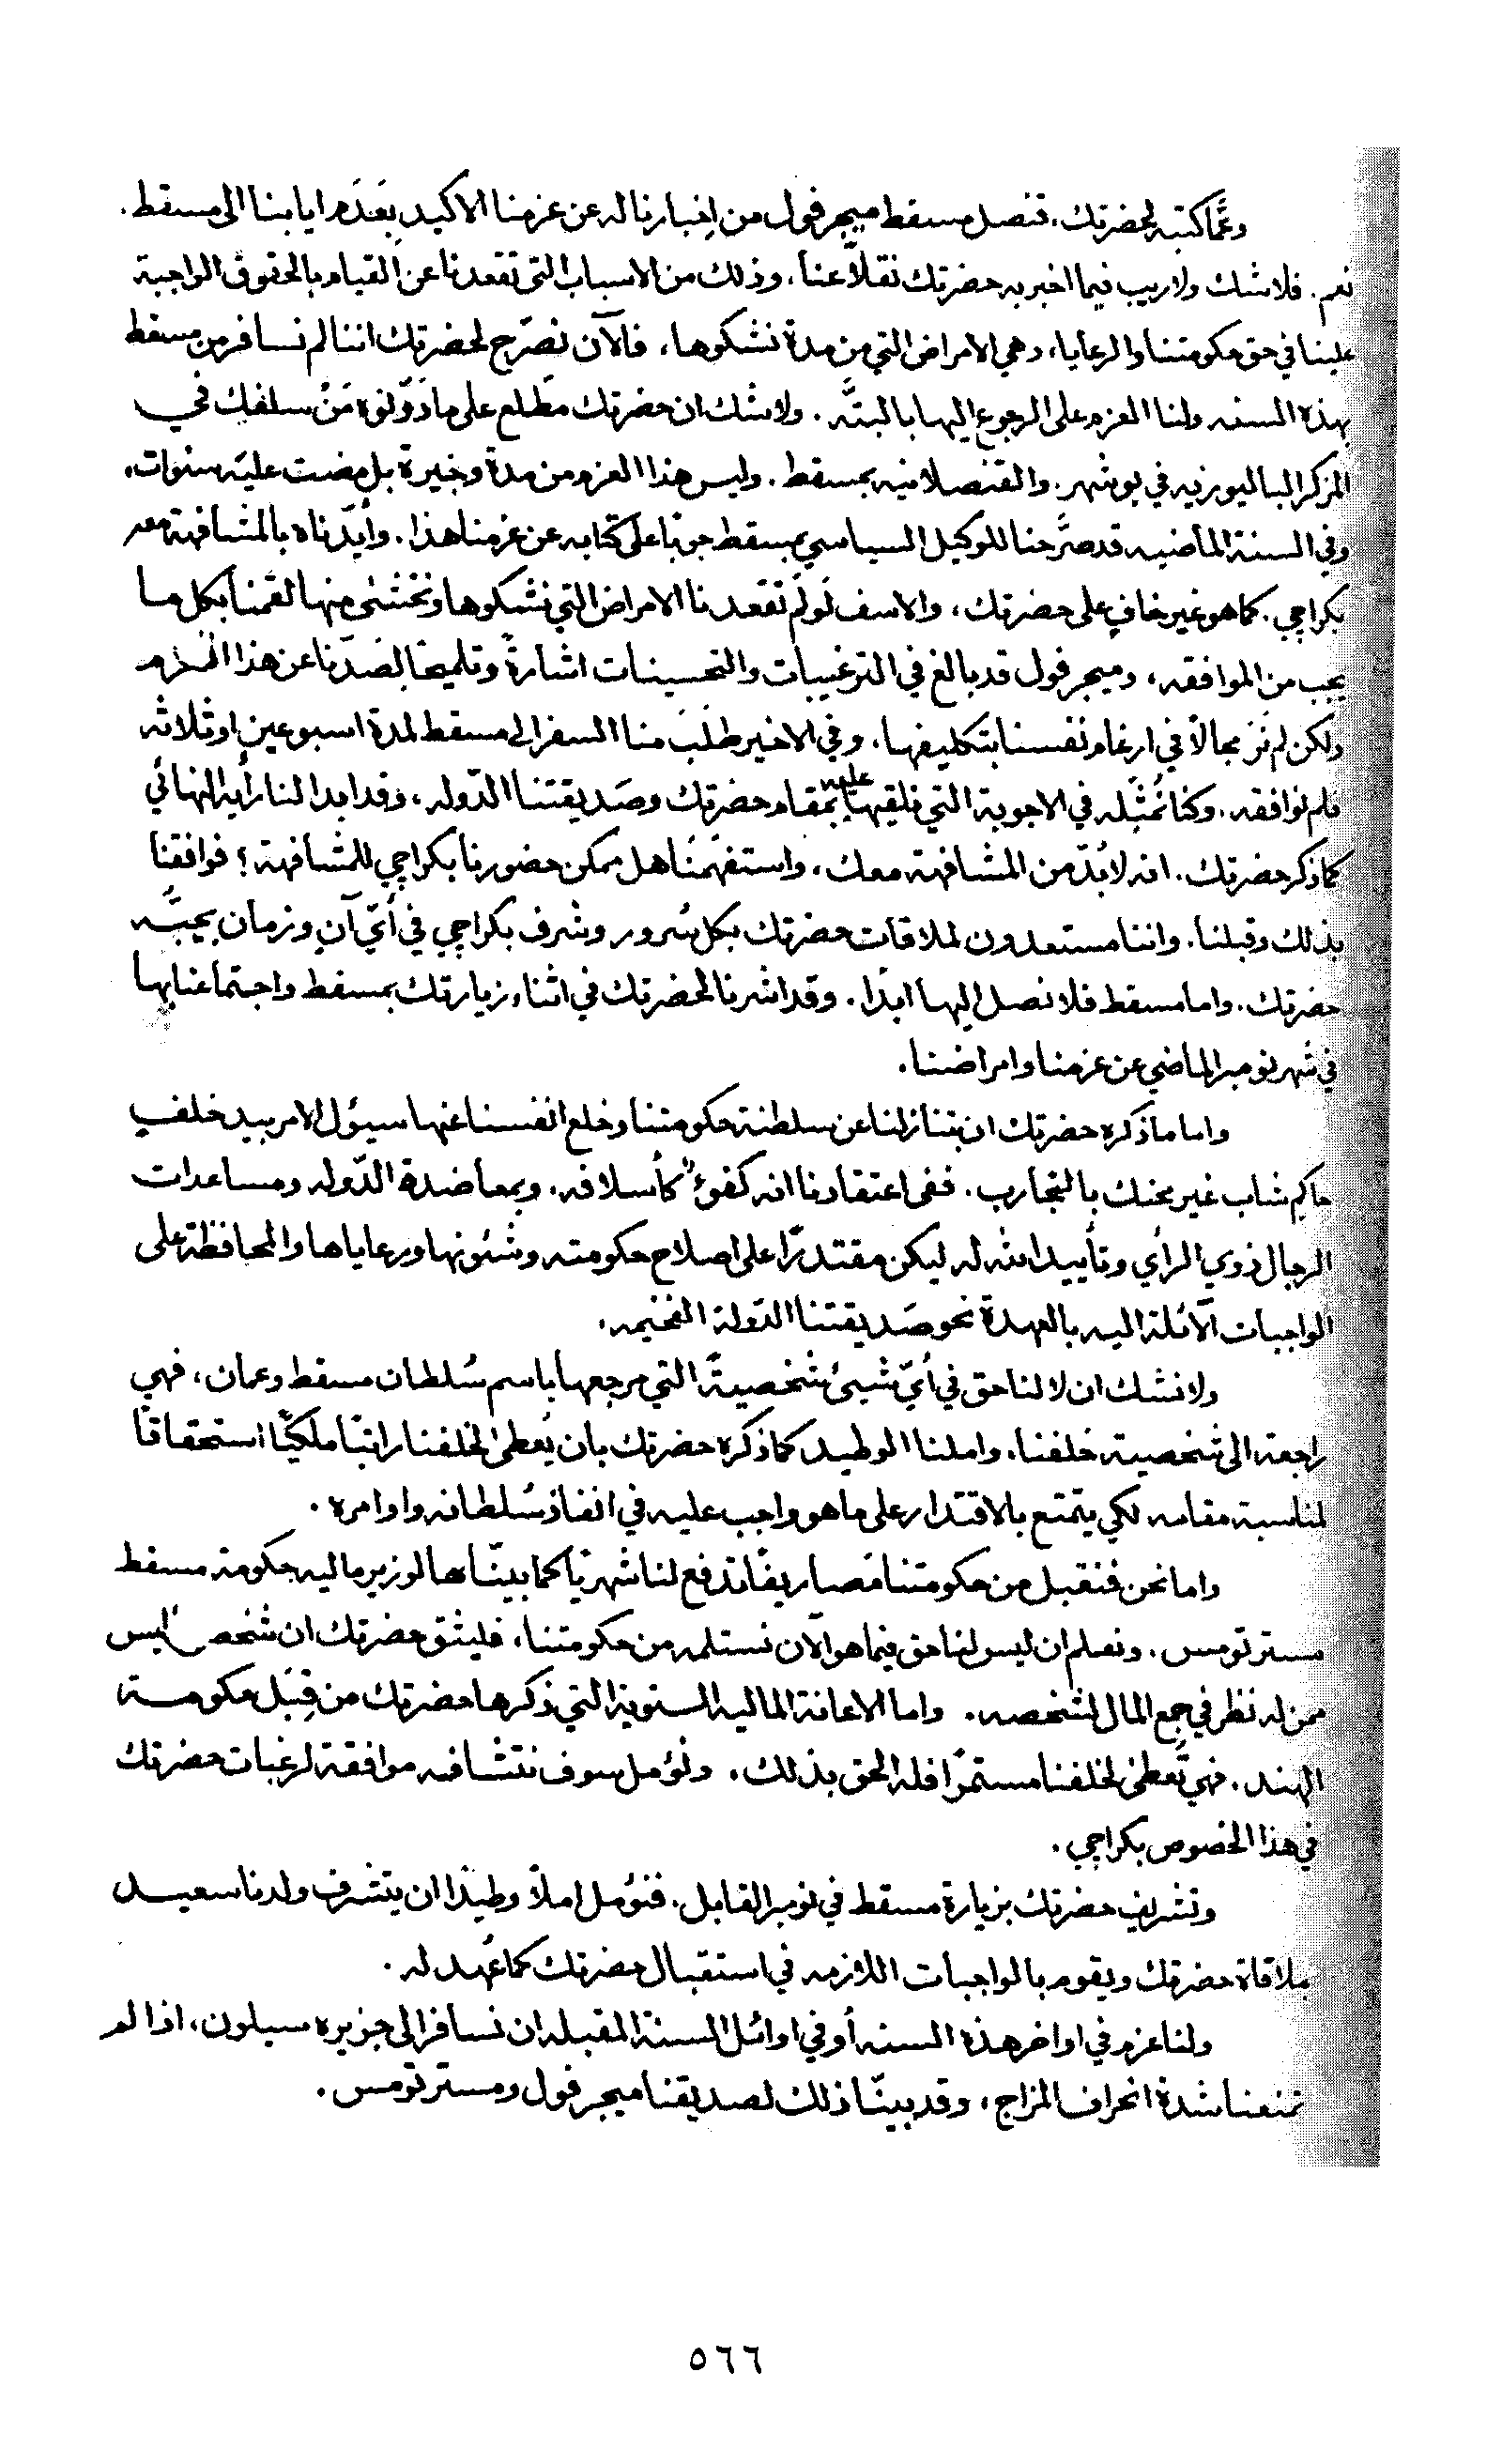 وعمّا كتبه لحضرتك، قنصل مسقط ميجر فول من إخبارنا له عن عزمنا الاكيد بعَدَم ايابنا الى مسقط.
نعم. فلا شك ولا ريب فيما اخبر به حضرتك نقلاً عنا. وذلك من الاسباب التي تقعدنا عن القيام بالحقوق الواجبة
علينا في حق حكومتنا والرعايا، وهي الامراض التي من مدة نشكوها، فالآن نصَرّح لحضرتك اننا لم نسافر من مسقط
بهذه السنه ولنا العزم على الرجوع اليها بالبتَّه. ولا شك ان حضرتك مطّلع على ما دَوّنوه مَنْ سلفك في
المركز الباليوزيه في بوشهر. والقنصلانيه بمسقط. وليس هذا العزم من مدة وخيرة بل مضت عليه سنوات،
وفي السنة الماضيه قد صرَّحنا للوكيل السياسي بمسقط جوبًا على كتابه عن عزمنا هذا. وأيدّناه بالمشافهة معه
بكراچي. كما هو غير خافٍ على حضرتك، والاسف لَو لَم تقعدنا الامراض التي نشكوها ونخشى منها لقمنا بكل ما
يجب من الموافقه، وميجر فول قد بالغ في الترغيبات والتحسينات اشارةً وتلميحًا لصَدّنا عن هذا العزم
ولكن لم نَرَ مجالاً في ارغام نفسنا بتكليفها. وفي الاخير طلَبَ منا السفر الى مسقط لمدة اسبوعين او ثلاثه
فلم نوافقه. وكنا نُمثّله في الاجوبة التي نلقيها عليه بمقام حضرتك وصَديقتنا الدّوله، وقد ابدا لنا رأيه النهائي
كما ذكر حضرتك. انه لا بُدّ من المشافهة معك، واستفهمَنا هل ممكن حضورنا بكراچي للمشافهة؟ فوافقنا
بذلك وقبلنا. واننا مستعدون لملاقات حضرتك بكل سُرور وشرف بكراچي في أيّ آنٍ وزمان يحبَّه
حضرتك. واما مسقط فلا نصل اليها ابدًا. وقد اشرنا لحضرتك في اثناء زيارتك بمسقط واجتماعنا بها
في شهر نومبر الماضي عن عزمنا وامراضنا.
واما ما ذكره حضرتك ان بتنازلنا عن سلطنة حكومتنا وخلع انفسنا عنها سيؤل الامر بيد خلفٍ
حاكم شاب غير محنك بالتجارب. ففي اعتقادنا انه كفؤٌ كأسلافه. وبمعاضدة الدّوله ومساعدات
الرجال ذوي الرأي وتأييد الله له ليكن مقتدرًا على اصلاح حكومته وشئونها ورعاياها والمحافظة على
الواجبات الآئلة اليه بالعهدة نحو صَديقتنا الدّولة الفخيمه.
ولا نشك ان لا لنا حق في أيّ شيئ شخصيةً التي مرجعها باسم سُلطان مسقط وعمان، فهي
راجعة الى شخصية خلفنا. واملنا الوطيد كما ذكره حضرتك بان يُعطى لخلفنا راتبًا ملكيًّا استحقاقًا
لمناسبة مقامه لكي يتمتع بالاقتدار على ما هو واجب عليه في انفاذ سُلطانه واوامره.
واما نحن فنقبل من حكومتنا مَصاريفًا تدفع لنا شهريًا كما بينّاها لوزير ماليه حكومة مسقط
مستر تومس. ونعلم ان ليس لنا حق فيما هو الآن نستلمه من حكومتنا، فليثق حضرتك ان شخصي ليس
ممن له نظر في جمع المال لشخصه. واما الاعانة الماليه السنوية التي ذكرها حضرتك من قِبَل حكومة
الهند. فهي تُعطى لخلفنا مستمرًا فله الحق بذلك. ونؤمل سوف نتشافه موافقة لرغبات حضرتك
في هذا الخصوص بكراچي.
وتشريف حضرتك بزيارة مسقط في نومبر القابل. فنؤمل املاً وطيدًا ان يتشرف ولدنا سعيد
بملاقاة حضرتك ويقوم بالواجبات اللازمه في استقبال حضرتك كما عُهد له.
ولنا عزم في اواخر هذه السنه أو في اوائل السنة المقبله ان نسافر الى جزيره سيلون، اذا لم
تمنعنا شدة انحراف المزاج، وقد بينّا ذلك لصديقنا ميجر فول ومستر تومس.
٥٦٦